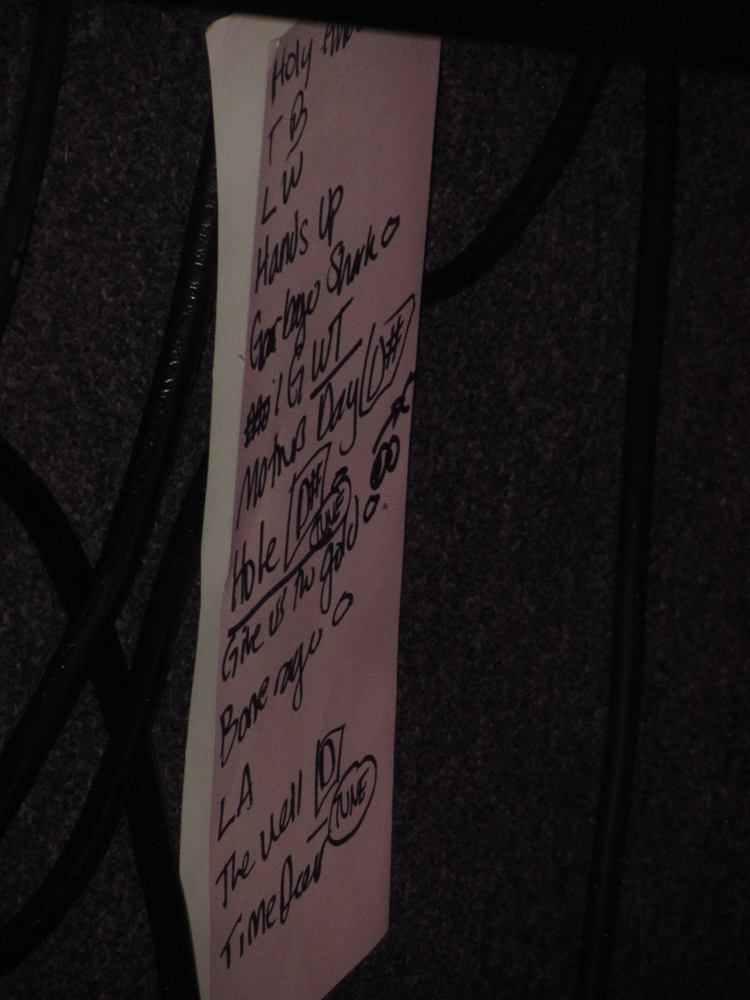 Holy
T B
L W
Hands Up
Garbage Shark O
iG WT
Mothers Day D#
Hole D# TUNE
Give us the gold O
Bone rage O
LA
The well D
TUNE
Time